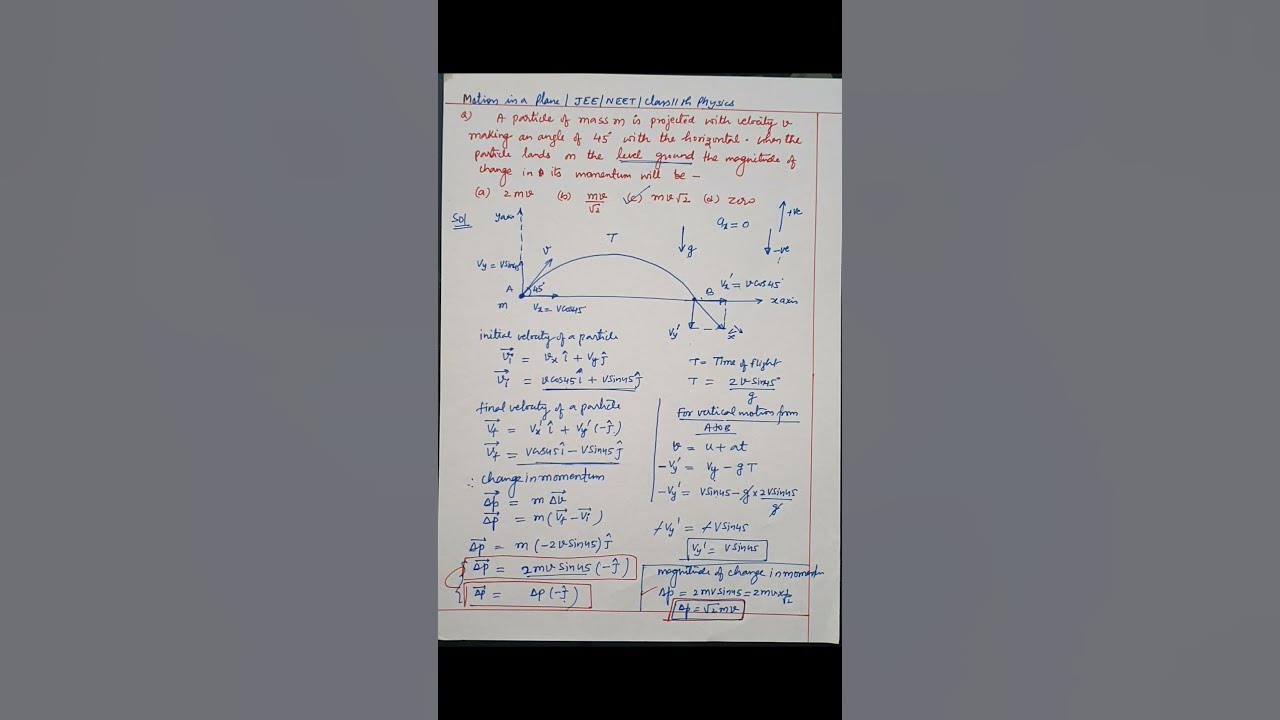 Motion in a Plane / JEE/NEET/Class 11th Physics
Q) A particle of mass m is projected with velocity v
making an angle of 45° with the horizontal. When the
particle lands on the level ground the magnitude of
change in its momentum will be –
(a) 2mv (b) mv/√2 (c) mv√2 (d) zero
Sol
y axis
Vy = Vsin45
v
T
g
ax = 0
+ve
-ve
A
m
45°
Vx = Vcos45°
B
Vx' = vcos45°
x axis
Vy'
initial velocity of a particle
Vi = vx î + vy ĵ
Vi = vcos45 î + vsin45 ĵ
T = Time of flight
T = 2vsin45°/g
final velocity of a particle
Vf = Vx' î + Vy' (-ĵ)
Vf = Vcos45 î – Vsin45 ĵ
∴ change in momentum
Δp = m Δv
Δp = m(Vf – Vi)
Δp = m(-2vsin45) ĵ
Δp = 2mvsin45 (-ĵ)
Δp = Δp (-ĵ)
For vertical motion from
A to B
v = u + at
-Vy' = Vy – gT
-Vy' = Vsin45 – g × 2Vsin45/g
-Vy' = -Vsin45
Vy' = Vsin45
magnitude of change in momentum
Δp = 2mvsin45 = 2mv×1/√2
Δp = √2 mv